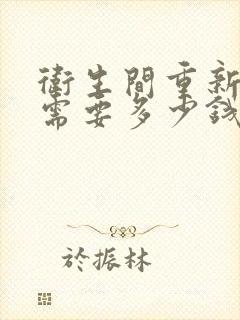 衛生間重新
需要多少錢
於振林